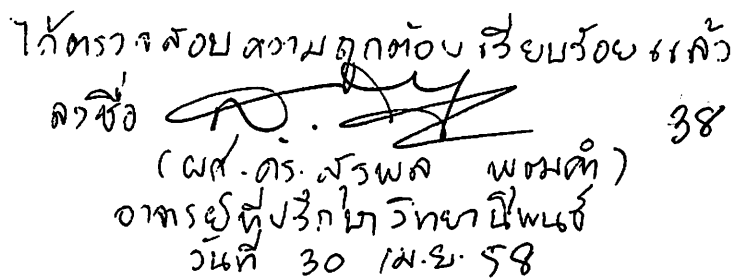 ได้ตรวจสอบความถูกต้องเรียบร้อยแล้ว
ลงชื่อ 38
(ผศ.ดร.สุรพล พุฒคำ)
อาจารย์ที่ปรึกษาวิทยานิพนธ์
วันที่ 30 เม.ย. 58